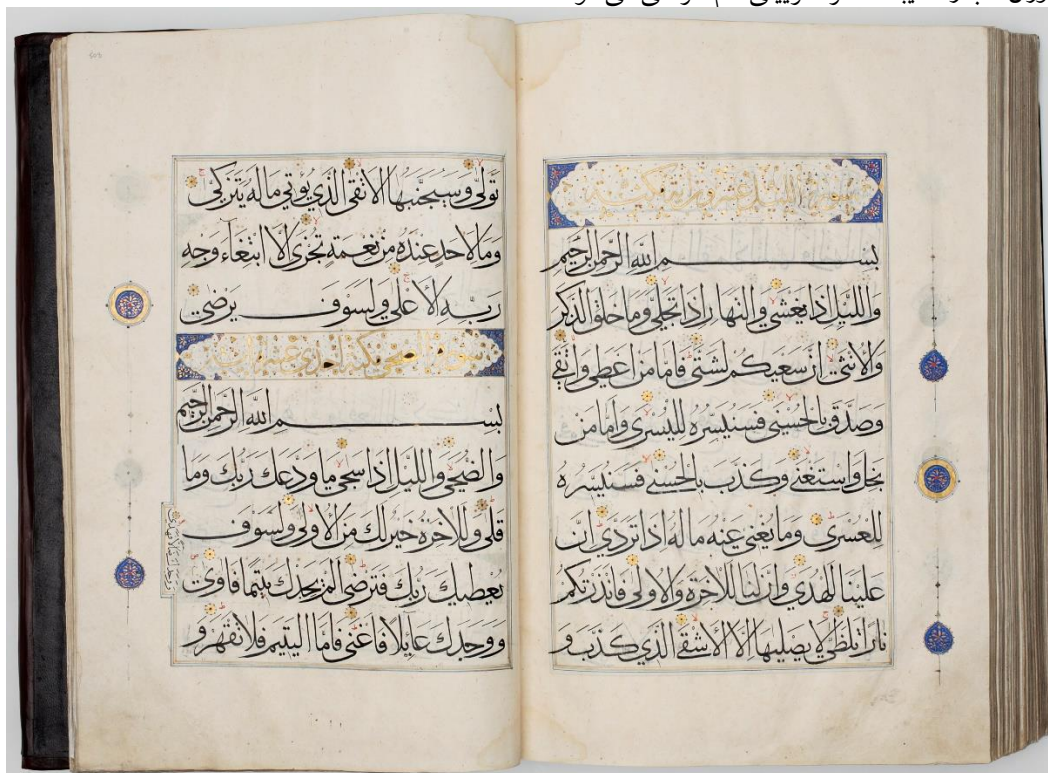 بسم الله الرحمن الرحيم
والليل اذا يغشى والنهار اذا تجلى وما خلق الذكر
والانثى ان سعيكم لشتى فاما من اعطى واتقى
وصدق بالحسنى فسنيسره لليسرى واما من
بخل واستغنى وكذب بالحسنى فسنيسره
للعسرى وما يغني عنه ماله اذا تردى ان
علينا للهدى وان لنا للاخرة والاولى فانذرتكم
نارا تلظى لا يصليها الا الاشقى الذي كذب و
تولى وسيجنبها الاتقى الذي يؤتي ماله يتزكى
وما لاحد عنده من نعمة تجزى الا ابتغاء وجه
ربه الاعلى ولسوف يرضى
سورة الضحى مكية احدى عشرة اية
بسم الله الرحمن الرحيم
والضحى والليل اذا سجى ما ودعك ربك وما
قلى وللاخرة خير لك من الاولى ولسوف
يعطيك ربك فترضى الم يجدك يتيما فاوى
ووجدك عايلا فاغنى فاما اليتيم فلا تقهر و
ووجدك ضالا فهدى